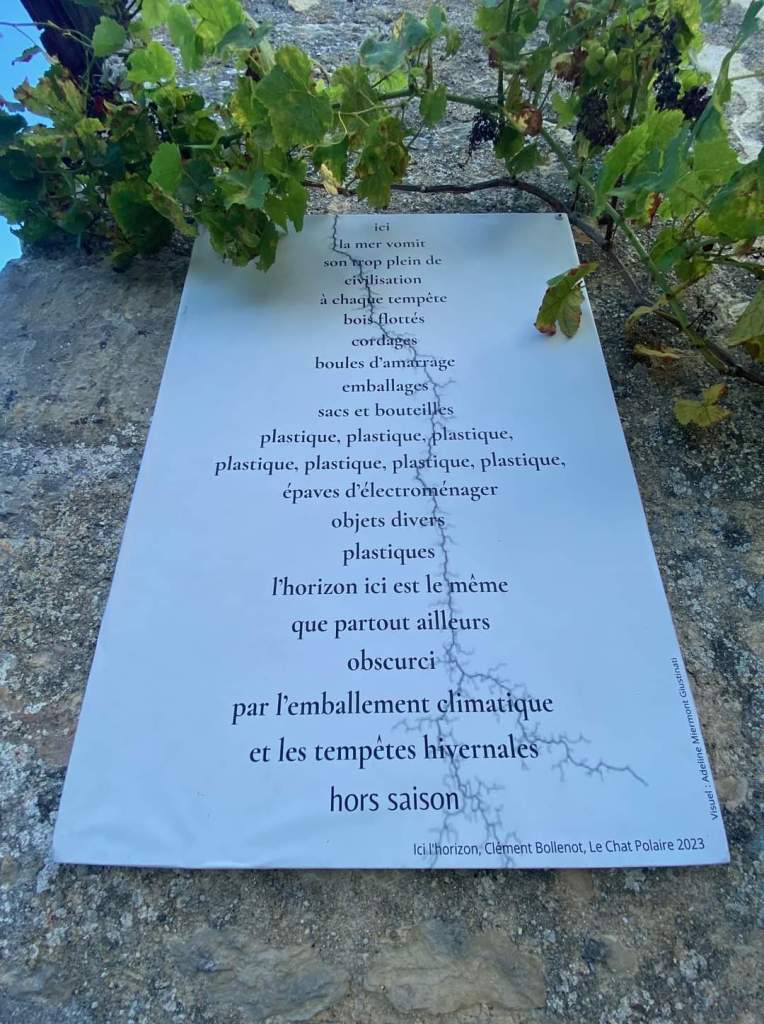 ici
la mer vomit
son trop plein de
civilisation
à chaque tempête
bois flottés
cordages
boules d'amarrage
emballages
sacs et bouteilles
plastique, plastique, plastique,
plastique, plastique, plastique, plastique,
épaves d'électroménager
objets divers
plastiques
l'horizon ici est le même
que partout ailleurs
obscurci
par l'emballement climatique
et les tempêtes hivernales
hors saison
Ici l'horizon, Clément Bollenot, Le Chat Polaire 2023
Visuel : Adeline Miermont Giustinati